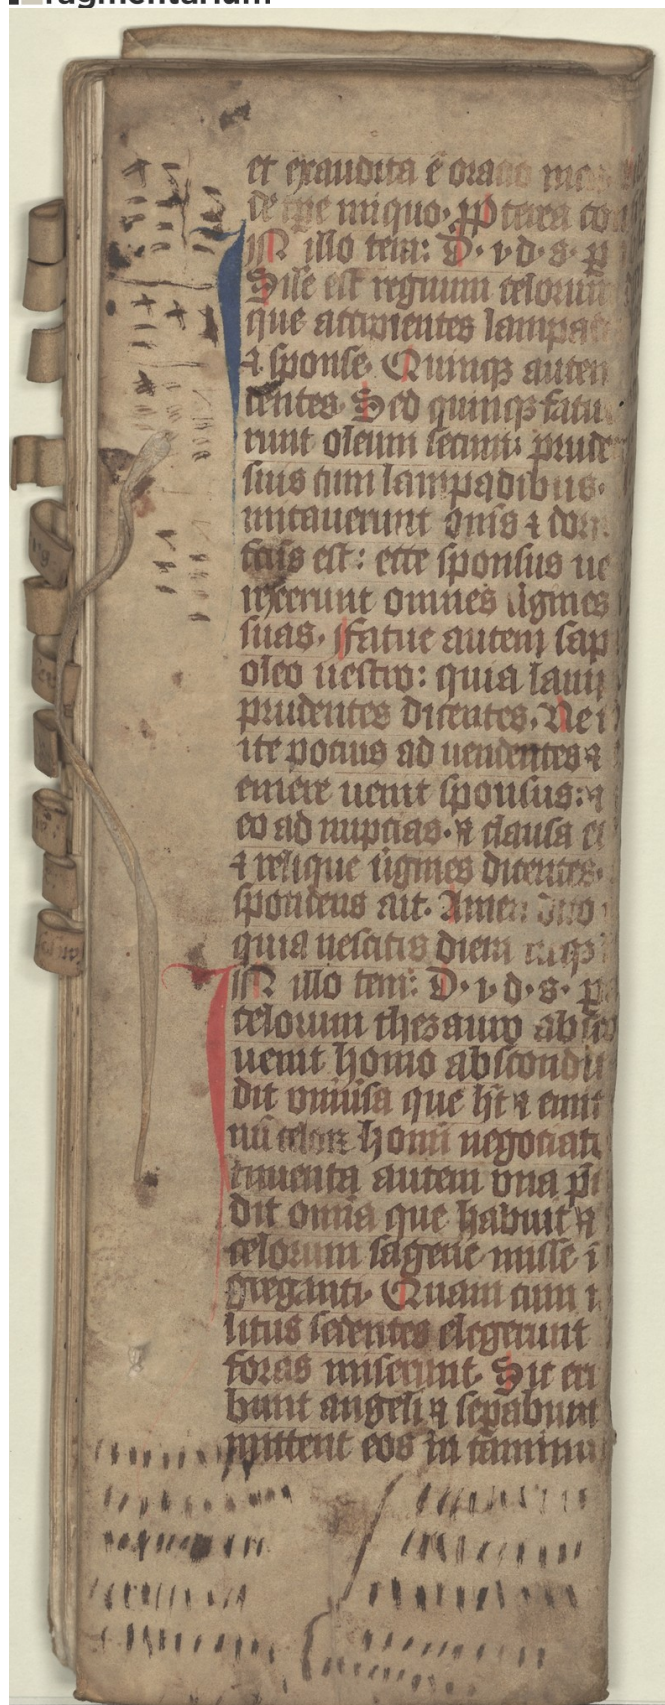 fragmentarium
et exaudita ē oratio mea
de tpe iniquo. ꝓpterea con
IN illo tem: D. i. d. s. p
Sile est regnum celorum
que accipientes lampad
⁊ sponse. Quinqꝫ autem
dentes. Sed quinqꝫ fatu
runt oleum secum: prude
suis cum lampadibus.
mitauerunt om̄s ⁊ dor
ctus est: ecce sponsus ue
rexerunt omnes uigines
suas. ffatue autem sap
oleo uestro: quia lamp
prudentes dicentes. Ne
ite potius ad uendentes ⁊
emere uenit sponsus: ⁊
eo ad nuptias. ⁊ clausa
⁊ relique uigines dicentes.
spondens ait. Amen dico
quia nescitis diem neqꝫ
IN illo tem: D. i. d. s. p
celorum thezauro absco
uenit homo abscondit
dit uniusa que ht ⁊ emit
nū celoꝝ homi negotiat
inuenta autem una p̄
dit omia que habuit ⁊
celorum sagene misse i
greganti. Quam cum i
litus sedentes elegerunt
foras miserunt. Sic eri
bunt angeli ⁊ sepabunt
mittent eos in caminu